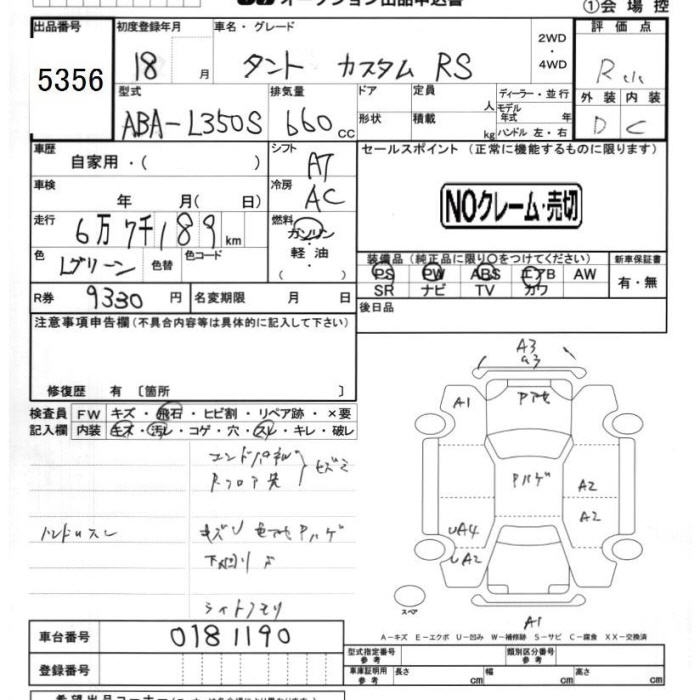 オークション出品申込書
①会場控
出品番号 初度登録年月 車名・グレード 評価点
5356 18 月 タント カスタム RS 2WD・4WD R
型式 排気量 ドア 定員 人 ディーラー・並行 外装 内装
ABA-L350S 660 cc 形状 積載 kg モデル年式 年 ハンドル 左・右 D C
車歴 シフト セールスポイント（正常に機能するものに限ります）
自家用・（ ） AT
車検 冷房 NOクレーム・売切
年 月（ 日） AC
走行 燃料
6万7千189km ガソリン・軽油・（ ）
色 色替 色コード 装備品（純正品に限り○をつけてください） 新車保証書
Lグリーン PS PW ABS エアB AW 有・無
SR ナビ TV カワ
R券 9330円 名変期限 月 日 後日品
注意事項申告欄（不具合内容等は具体的に記入して下さい）
修復歴 有〔箇所 〕
検査員記入欄 FW キズ・飛石・ヒビ割・リペア跡・×要
内装 キズ・汚レ・コゲ・穴・スレ・キレ・破レ
A3
a3
A1
Pハゲ
A2
A2
UA4
UA2
A1
スペア
ライトクモリ
A-キズ E-エクボ U-凹み W-補修跡 S-サビ C-腐食 XX-交換済
車台番号 0181190
型式指定番号 参考 類別区分番号 参考
登録番号 車庫証明用 参考 長さ cm 幅 cm 高さ cm
希望出品コーナー